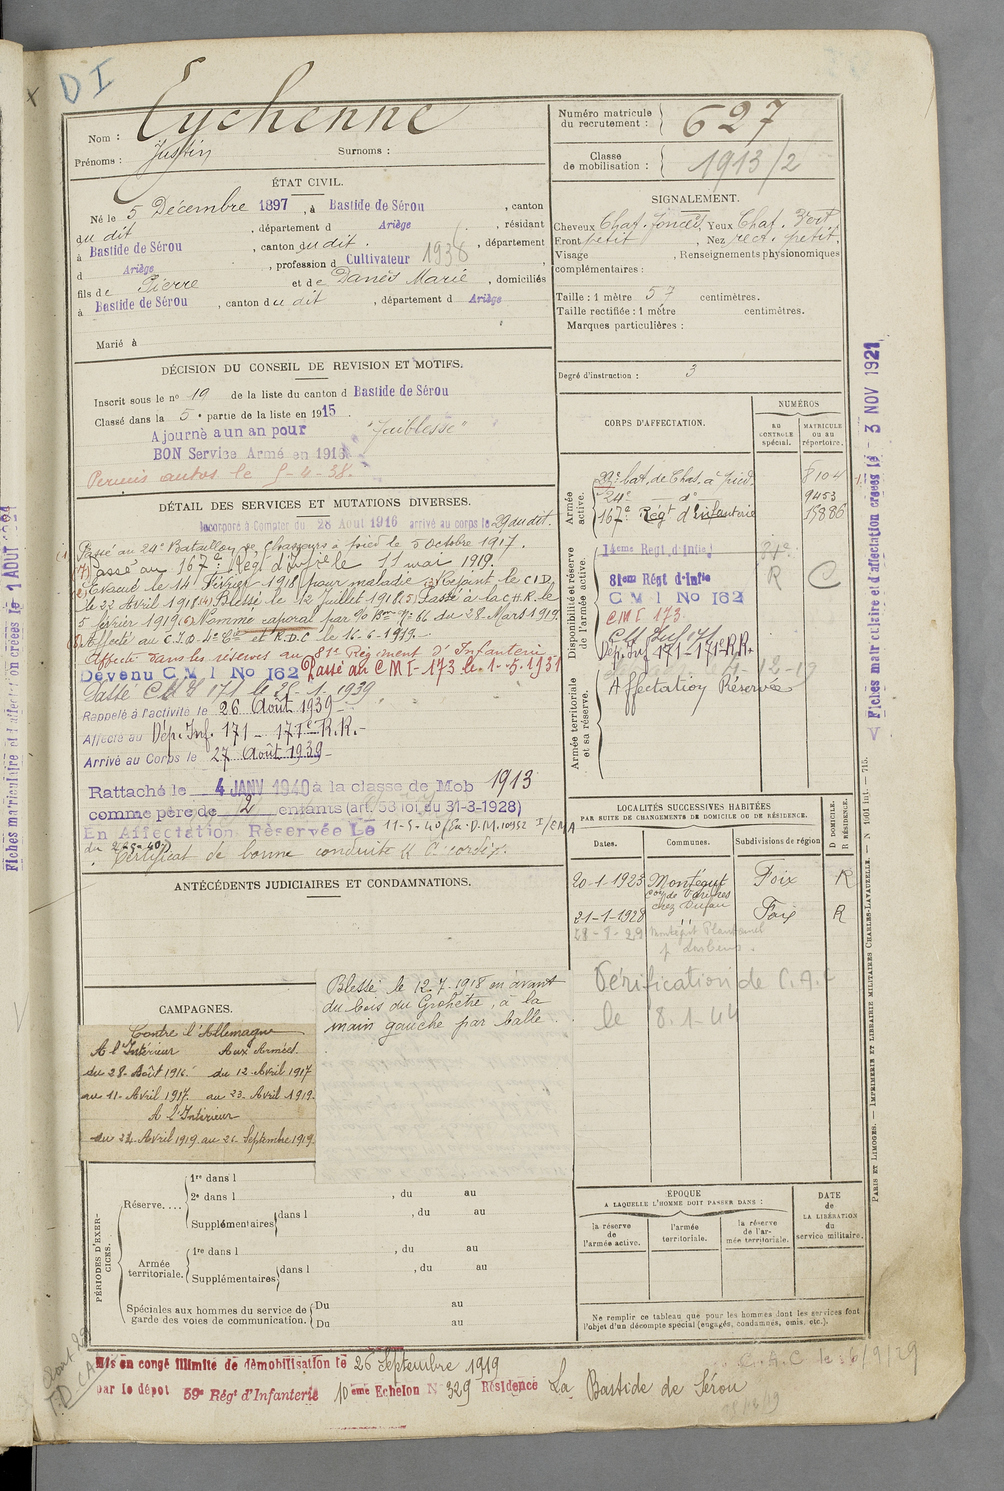 D I
X
Nom : Eychenne
Prénoms : Justin Surnoms :
Numéro matricule du recrutement : 627
Classe de mobilisation : 1913/2
ÉTAT CIVIL.
Né le 5 Décembre 1897, à Bastide de Sérou, canton
du dit, département d Ariège, résidant
à Bastide de Sérou, canton du dit, département
d Ariège, profession d Cultivateur 1938,
fils de Pierre et de Danès Marie, domiciliés
à Bastide de Sérou, canton du dit, département d Ariège
Marié à
SIGNALEMENT.
Cheveux Chat. foncés Yeux Chat. Vert
Front petit, Nez rect. petit.
Visage, Renseignements physionomiques
complémentaires :
Taille : 1 mètre 57 centimètres.
Taille rectifiée : 1 mètre centimètres.
Marques particulières :
Degré d'instruction : 3
DÉCISION DU CONSEIL DE REVISION ET MOTIFS.
Inscrit sous le nº 19 de la liste du canton d Bastide de Sérou
Classé dans la 5e partie de la liste en 1915
Ajourné a un an pour "Faiblesse"
BON Service Armé en 1916
Permis autos le 5-4-38.
DÉTAIL DES SERVICES ET MUTATIONS DIVERSES.
Incorporé à Compter du 28 Aout 1916 arrivé au corps le 29 du dit.
Passé au 24e Bataillon de Chasseurs à pied le 5 Octobre 1917.
Passé au 167e Régt d'Infie le 11 mai 1919.
Evacué le 14 Février 1918 pour maladie (3) Rejoint le C.I.D.
le 22 Avril 1918 (4) Blessé le 12 Juillet 1918 (5) Passé à la C.H.R. le
5 février 1919 (6) Nommé caporal par Nº 66 du 28 Mars 1919.
Affecté au et R.D.C le 16-6-1919.
Affecté dans les réserves au 81e Régiment d'Infanterie
Devenu C M I No 162 Passé au C M I-173 le 1-5.1931
Passé 171 le 1.1939
Rappelé à l'activité le 26 Août 1939
Affecté au Dép. Inf. 171 - 171e R.R.-
Arrivé au Corps le 27 Août 1939
Rattaché le 4 JANV 1940 à la classe de Mob 1913
comme père de 2 enfants (art. 58 loi du 31-3-1928)
En Affectation Réservée Le 11-5-40 D.M. 10952 I/EMA
du 2-5-40
Certificat de bonne conduite
CORPS D'AFFECTATION.
NUMÉROS
AU CONTROLE spécial.
MATRICULE ou au répertoire.
Armée active.
bat. de Chas. à pied. 8104
24e d° 9453
167e Régt d'Infanterie 15886
Disponibilité et réserve de l'armée active.
14eme Regt d'Infie
81em Régt d'Infie R C
C M I No 162
CMI 173
Dép. Inf. 171 - 171e R.R.
Affectation Réservée
Armée territoriale et sa réserve.
LOCALITÉS SUCCESSIVES HABITÉES
PAR SUITE DE CHANGEMENTS DE DOMICILE OU DE RÉSIDENCE.
Dates. Communes. Subdivisions de région D DOMICILE. R RÉSIDENCE.
20-1-1923 Montégut Foix R
chez Dufau
21-1-1928 " Foix R
28-8-29 Montégut Plantaurel
Vérification de C.A.F
le 8.1-44
ANTÉCÉDENTS JUDICIAIRES ET CONDAMNATIONS.
CAMPAGNES.
Contre l'Allemagne
A l'Intérieur Aux Armées
du 28 Août 1916 du 12 Avril 1917
au 11 Avril 1917 au 23 Avril 1919.
A l'Intérieur
du 24 Avril 1919 au 25 Septembre 1919
Blessé le 12.7.1918 en avant
du bois du Grohêtre, à la
main gauche par balle.
PÉRIODES D'EXERCICES.
Réserve....
1re dans l , du au
2e dans l , du au
Supplémentaires dans l , du au
Armée territoriale.
1re dans l , du au
Supplémentaires dans l , du au
Spéciales aux hommes du service de garde des voies de communication. Du au
Du au
ÉPOQUE
A LAQUELLE L'HOMME DOIT PASSER DANS :
la réserve de l'armée active.
l'armée territoriale.
la réserve de l'armée territoriale.
DATE de LA LIBÉRATION du service militaire.
Ne remplir ce tableau que pour les hommes dont les services font
l'objet d'un décompte spécial (engagés, condamnés, omis, etc.).
Mis en congé illimité de démobilisation le 26 Septembre 1919
par le dépôt 59e Régt d'Infanterie 10eme Echelon N 329 Résidence La Bastide de Sérou
C.A.C le 6/9/29
Fiches matriculaire et d'affectation créées le 3 NOV 1921
Fiches matriculaire et d'affectation créées le 1 AOUT
PARIS ET LIMOGES. — IMPRIMERIE ET LIBRAIRIE MILITAIRES CHARLES-LAVAUZELLE. — N 1601 int. — 715.